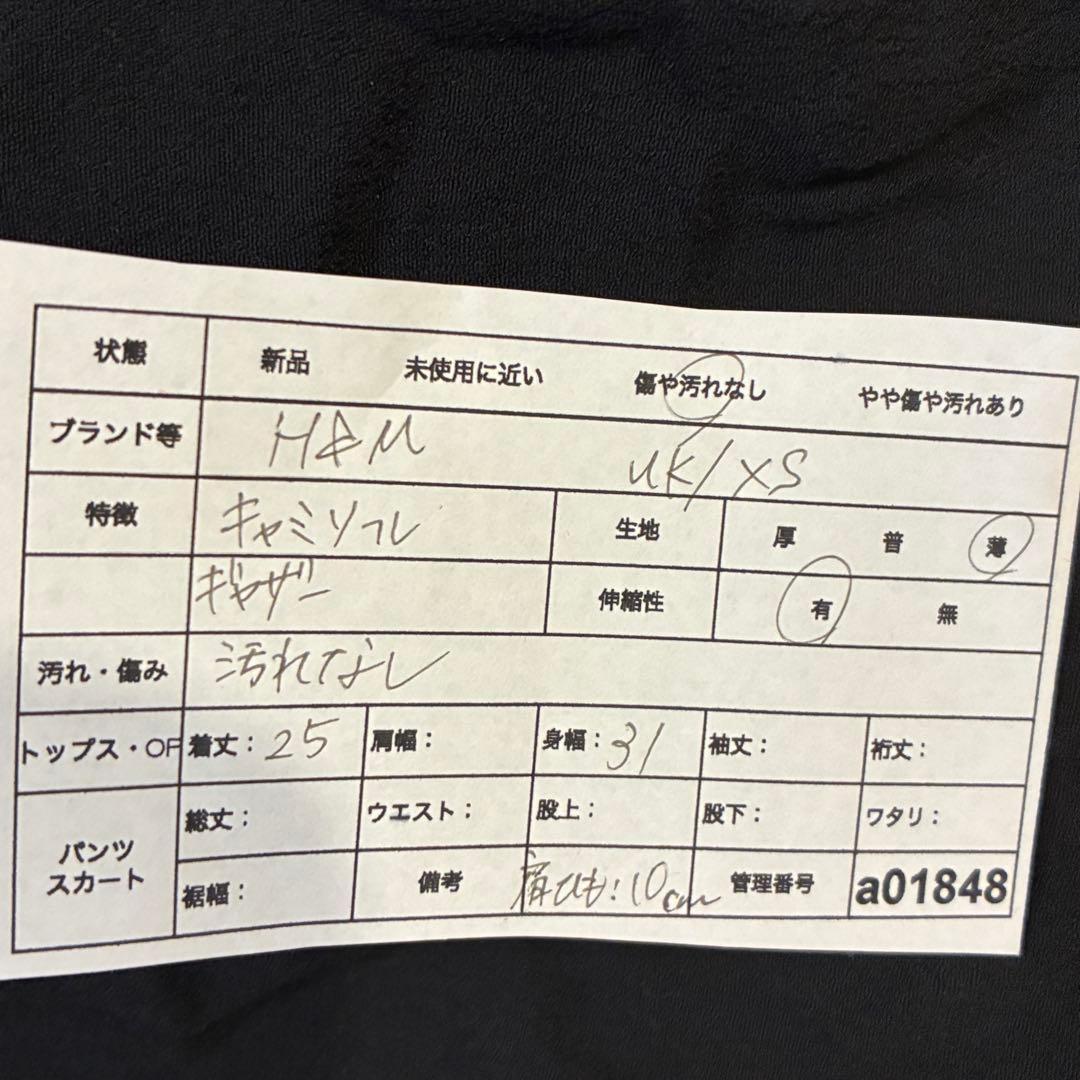 状態 新品 未使用に近い 傷や汚れなし やや傷や汚れあり
ブランド等 H&M UK/XS
特徴 キャミソフレ 生地 厚 普 薄
ギャザー 伸縮性 有 無
汚れ・傷み 汚れなし
トップス・OP 着丈: 25 肩幅: 身幅: 31 袖丈: 裄丈:
パンツ スカート
総丈: ウエスト: 股上: 股下: ワタリ:
裾幅: 備考 肩ひも:10cm 管理番号 a01848